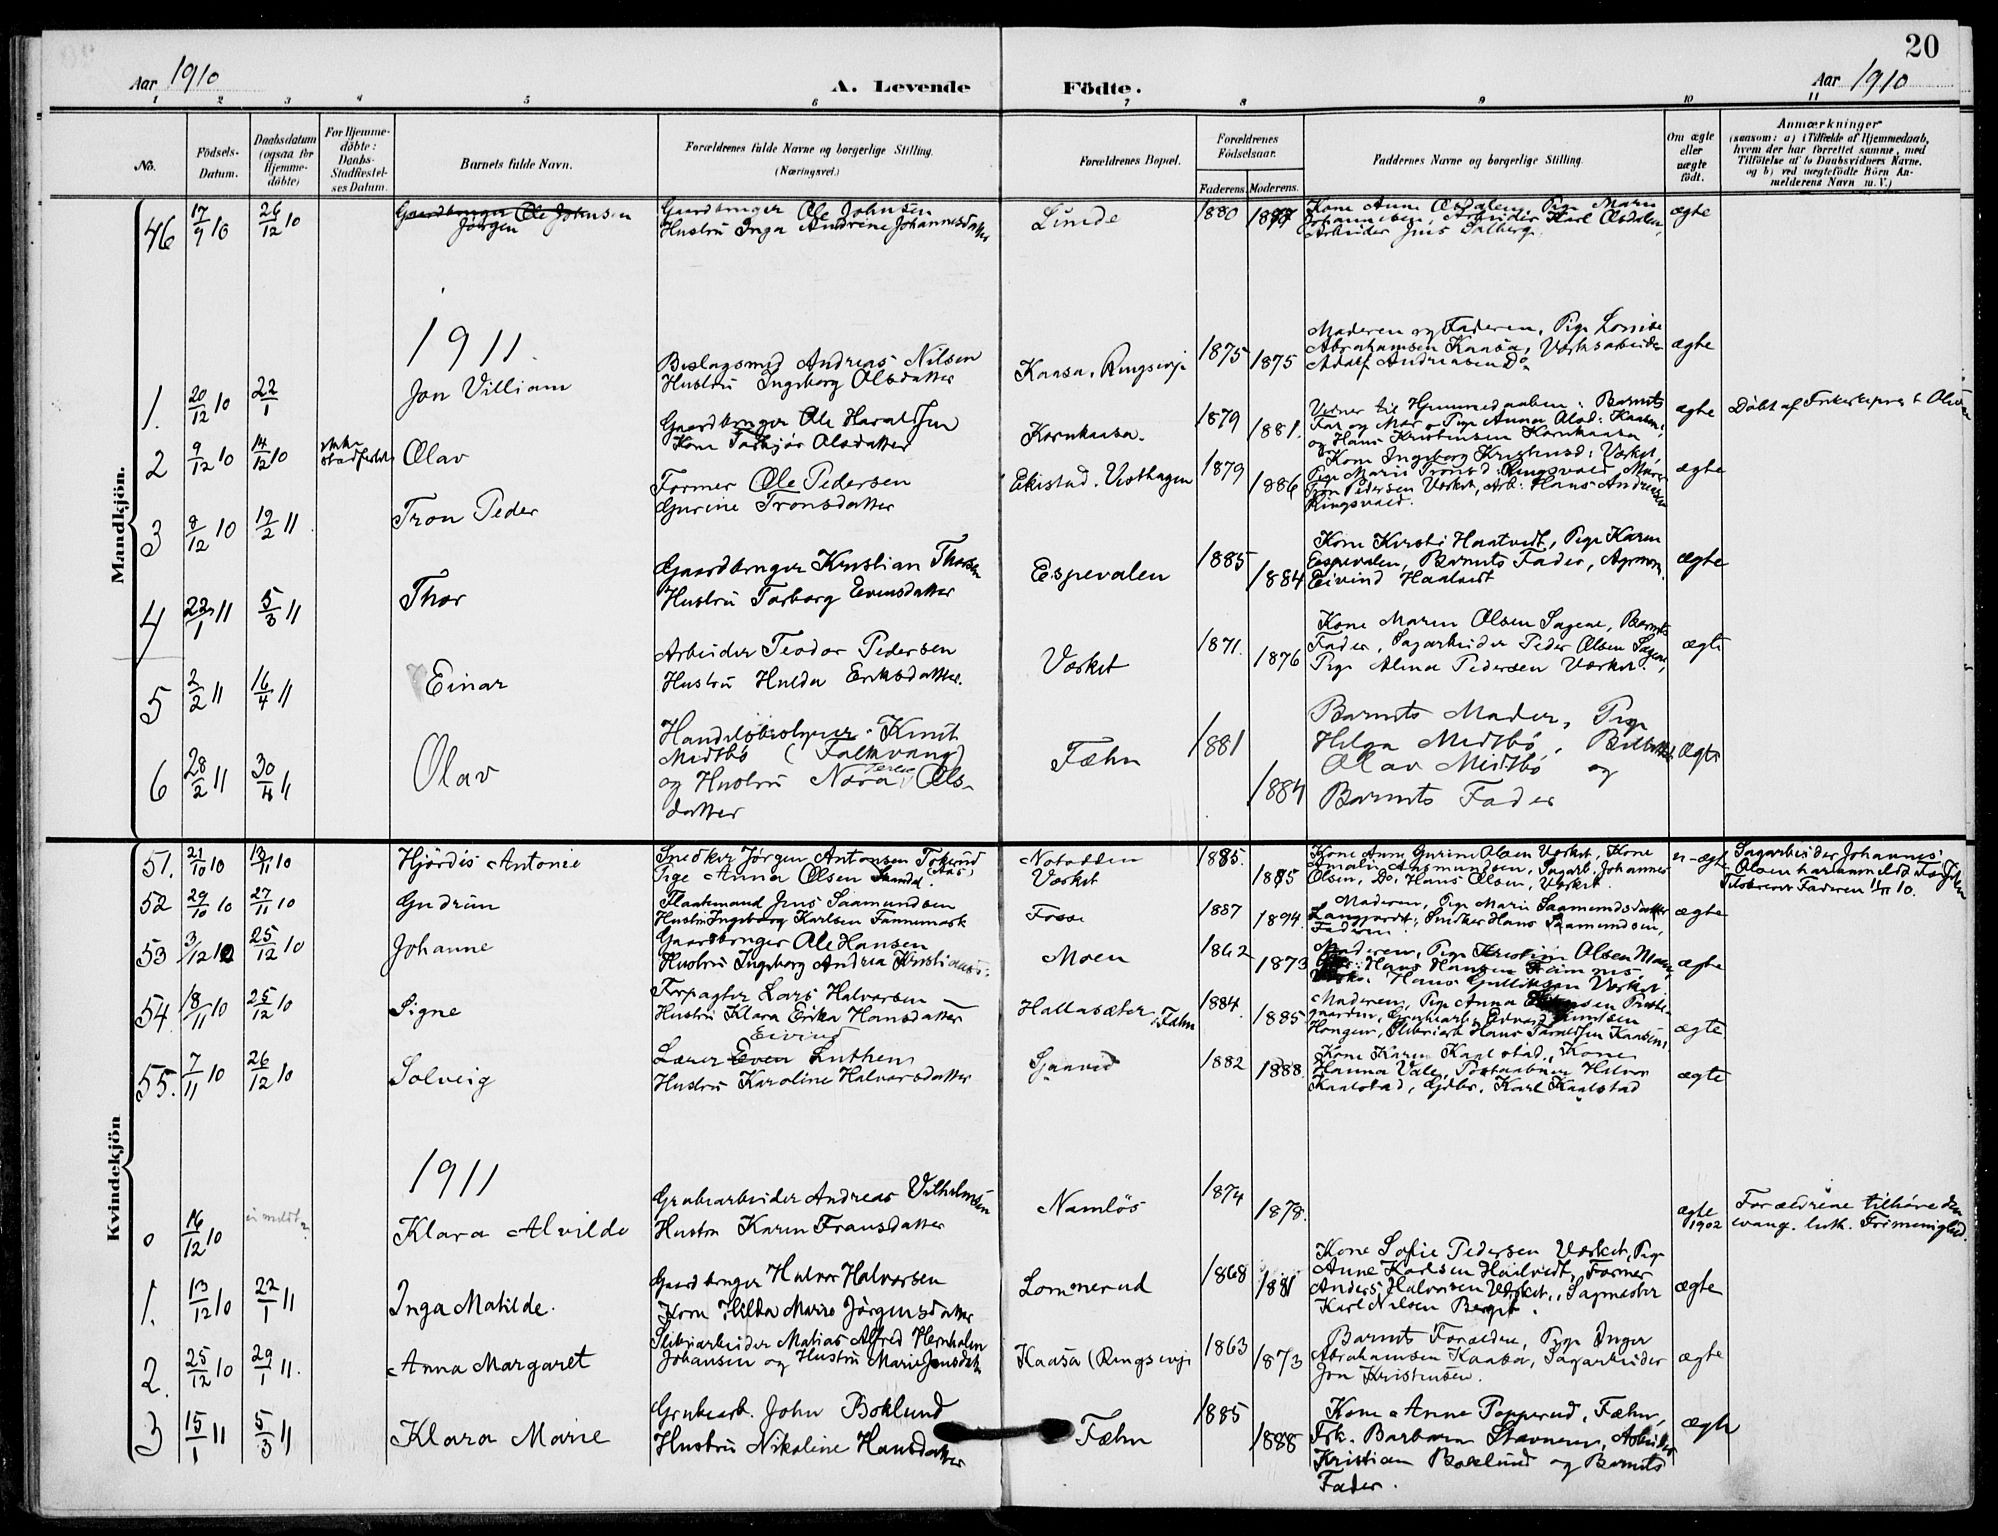 20
Aar 1910
A. Levende Födte.
Aar 1910
1 2 3 4 5 6 7 8 9 10 11
No.
Födsels-
Datum.
Daabsdatum
(ogsaa for
Hjemme-
döbte)
For Hjemme-
döbte:
Daabs-
Stadfæstel-
ses Datum.
Barnets fulde Navn.
Forældrenes fulde Navne og borgerlige Stilling.
(Næringsvei.)
Forældrenes Bopæl.
Forældrenes
Födselsaar.
Faderens. Moderens.
Faddernes Navne og borgerlige Stilling.
Om ægte
eller
uægte
født.
Anmærkninger
(saasom: a) i Tilfælde af Hjemmedaab,
hvem der har forrettet samme, med
Tilföielse af to Daabsvidners Navne,
og b) ved uægtefödte Börn An-
melderens Navn m. V.)
Mandkjön.
46 17/9 10 26/12 10
Gaardbruger Ole Johnsen
Jørgen
Gaardbruger Ole Johnsen
Hustru Inga Andrine Johannesdatter
Linde
1880
Kone Anne Øsdalen, Pige Maren
Johannesen, Arbeider Karl Øsdalen,
Arbeider Jens Dalberg.
ægte
1911.
1. 20/12 10 22/1
Jon Villiam
Beslagsmed Andreas Nilsen
Hustru Ingeborg Olsdatter
Kaasa, Ringsevje
1875 1875
Moderen og Faderen, Pige Lovise
Abrahamsen Kaasa, Værksarbeider
Adolf Andreasen Do
ægte
2 9/12 10 14/12 10
Olav
Gaardbruger Ole Haraldsen
Kone Torbjør Olsdatter
Kornkaasa.
1879 1881.
Vidner til Hjemmedaaben: Barnets
Far og Mor o Pige Anna Olsd: Kaasen,
og Hans Kristensen Kornkaasa
ægte
Döbt af
3 8/12 10 19/2 11
Tron Peder
Former Ole Pedersen
Gurine Tronsdatter
Ekistad. Vesthagen
1879 1886
Kone Ingeborg Kristensd: Værket,
Pige Marie Tronsd: Ringsvold, Murer
Tron Pedersen Værket, Arb: Hans Andreasen
Ringsvold.
ægte
4 22/1 11 5/3 11
Thor
Gaardbruger Kristian Thorsen
Hustru Torborg Evensdatter
Espevalen
1885 1884
Kone Kirsti Haatvedt, Pige Karen
Espevalen, Barnets Fader, Agronom.
Eivind Haatvedt
ægte
5 2/2 11 16/4 11
Einar
Arbeider Teodor Pedersen
Hustru Hulda Eriksdatter.
Værket
1871. 1876
Kone Maren Olsen Sagene, Barnets
Fader, Sagarbeider Peder Olsen Sagene,
Pige Alma Pedersen Værket.
ægte
6 28/2 11 30/4 11
Olav
Handelsbestyrer Knut
Midtbö (Falkvang)
og Hustru Nora Ols-
datter
Fæhn
1881 1884
Barnets Moder, Pige
Helga Midtbö,
Olav Midtbö og
Barnets Fader
ægte
Kvindekjön
51. 21/10 10 13/11 10
Hjördis Antonie
Snedker Jørgen Antonsen Tokerud
Pige Anna Olsen Sanda.
Notodden
Værket
1885. 1885
Kone Anne Gurine Olsen Værket, Kone
Amalie Aasmundsen, Sagarb. Johannes
Olsen, Do, Hans Olsen, Værket.
u-ægte
Sagarbeider Johannes
Olsen har anmeldt Fødselen
Tilskrevet Faderen 11/11 10.
52 29/10 10 27/11 10
Gudrun
Flaatemand Jens Saamundsen
Hustru Ingeborg Karlsen Finnemark
Fosse
1887 1894.
Moderen, Pige Marie Saamundsdatter
Langjordet, Snedker Hans Saamundsen,
Faderen.
ægte
53 3/12 10 25/12 10
Johanne
Gaardbruger Ole Hansen
Hustru Ingeborg Andrea Kristiansd.
Moen
1862 1873
Moderen, Pige Kristine Olsen Moen,
Hans Hansen
Hans Gulliksen Værket.
ægte
54. 18/11 10 25/12 10
Signe
Forpagter Lars Halvorsen
Hustru Klara Erika Hansdatter
Hallasæter, Fæhn
1884. 1885
Moderen, Pige Anna
ægte
55. 7/11 10 26/12 10
Solveig
Eivind
Lærer Even Luthen
Hustru Karoline Halvorsdatter
Gaaved
1882 1888.
Kone Karen Kaalstad, Kone
Hanna Vale, Postaabner Halvor
Kaalstad, Gdbr. Karl Kaalstad
ægte
1911
0 16/12 10 ei meldt
Klara Alvilde
Grubearbeider Andreas Vilhelmsen
Hustru Karen Fransdatter
Namløs
1874 1878.
ægte
1902
Forældrene tilhöre den
evang. luth. Frimenighed.
1. 13/12 10 22/1 11
Inga Matilde.
Gaardbruger Halvor Halvorsen
Kone Hilda Marie Jørgensdatter
Lommerud
1868 1881
Kone Sofie Pedersen Værket, Pige
Anne Karlsen Haatvedt, Former
Anders Halvorsen Værket, Sagmester
Karl Nilsen Berget.
ægte
2. 25/12 10 29/1 11.
Anna Margaret
Sliberiarbeider Matias Alfred Hernholm
Johansen og Hustru Marie Jensdatter
Kaasa (Ringsevje
1863 1873
Barnets Forældre, Pige Inger
Abrahamsen Kaasa, Sagarbeider
Jon Kristensen.
ægte
3 15/1 11 5/3 11
Klara Marie
Grubearb. John Boklund
Hustru Nikoline Hansdatter
Fæhn
1885 1888
Kone Anne Popperud, Fæhn,
Frk. Barbara Stavnem, Arbeider
Kristian Boklund og Barnets
Fader.
ægte